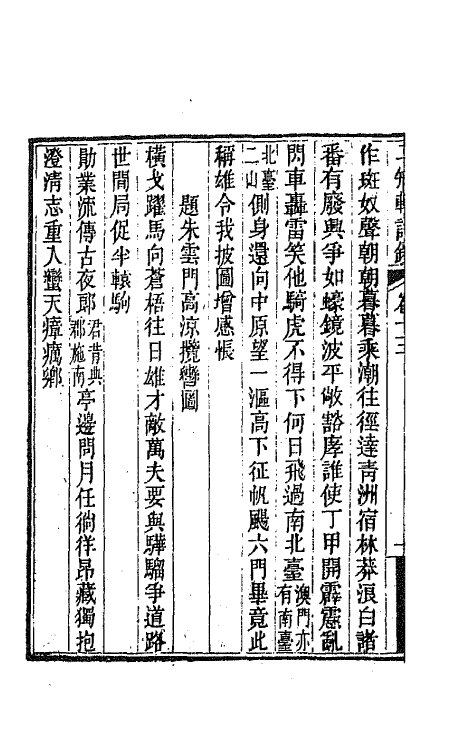 二知軒詩鈔 卷十三 十
作斑奴聲朝朝暮暮乘潮往徑達青洲宿林莽浪白諸
番有廢興爭如蠔鏡波平敞豁庨誰使丁甲開霹靂亂
閃車轟雷笑他騎虎不得下何日飛過南北臺澳門亦有南臺
北臺二山側身還向中原望一漚高下征帆颺六門畢竟此
稱雄令我披圖增感悵
題朱雲門高涼攬轡圖
橫戈躍馬向蒼梧往日雄才敵萬夫要與驊騮爭道路
世間局促半轅駒
勛業流傳古夜郎君昔典郡施南亭邊問月任徜徉昂藏獨抱
澄清志重入蠻天瘴癘鄉